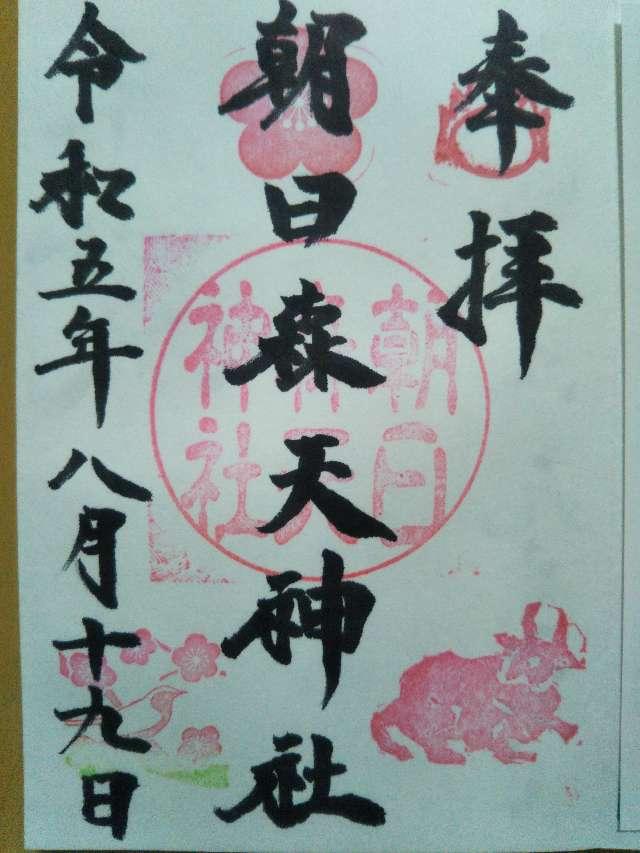 奉拝
朝日森天神社
朝日森天神社
令和五年八月十九日